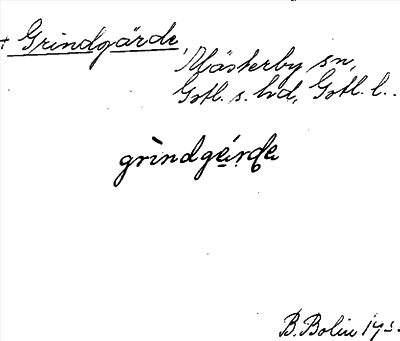 + Grindgärde,
Mästerby sn,
Gotl. s. hd, Gotl. l.
grìndgä́rde
B. Bolin